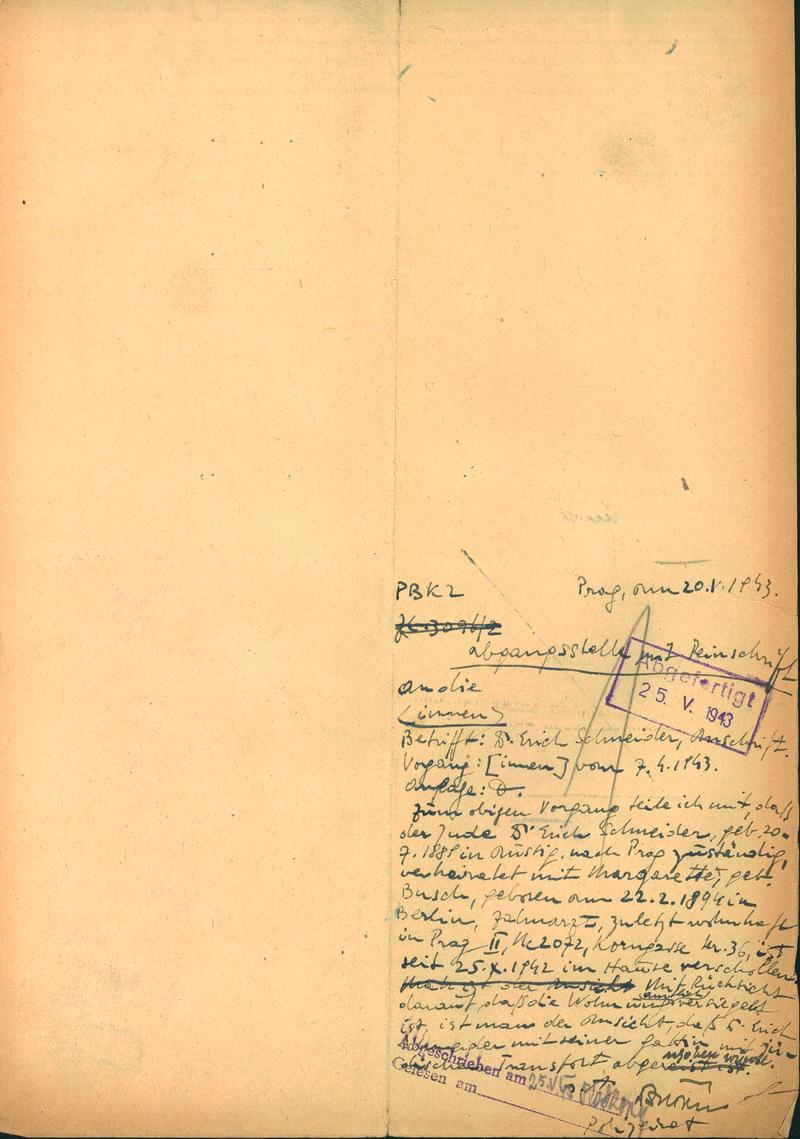 PBK2 Prag, am 20.V.1943.
abgangsstelle mit Reinschrift
an die
(innen)
Abgefertigt
25. V. 1943
Betrifft: Dr. Erich Schneider, Anschrift.
Vorgang: [innen] vom 7.4.1943.
Anlage:
Zum obigen Vorgang teile ich mit, daß
der Jude Dr. Erich Schneider, geb. 20.
7. in Aussig, nach Prag zuständig,
verheiratet mit Margarette, geb.
Busch, geboren am 22.2.1894 in
Berlin, Zahnarzt, zuletzt wohnhaft
in Prag II, Nr. 2072, Korngasse Nr. 36, ist
seit 25.X.1942 im Hause verschollen.
Man ist der Ansicht Mit Rücksicht
darauf, daß die Wohnung amtlich versiegelt
ist, ist man der Ansicht, daß Dr. Erich
Schneider mit seiner Gattin mit
Transport
Abgeschrieben am 25.V.
Gelesen am